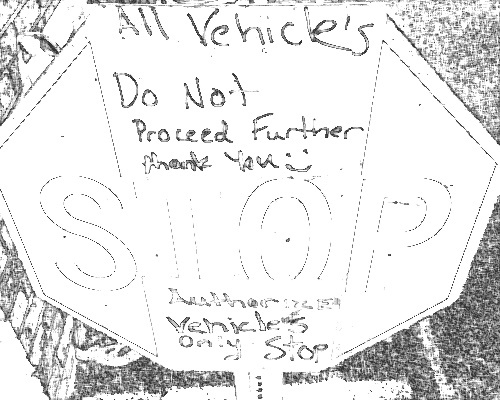 All Vehicle's
Do Not
Proceed Further
thank You :)
STOP
Authorized
Vehicle's
Only Stop